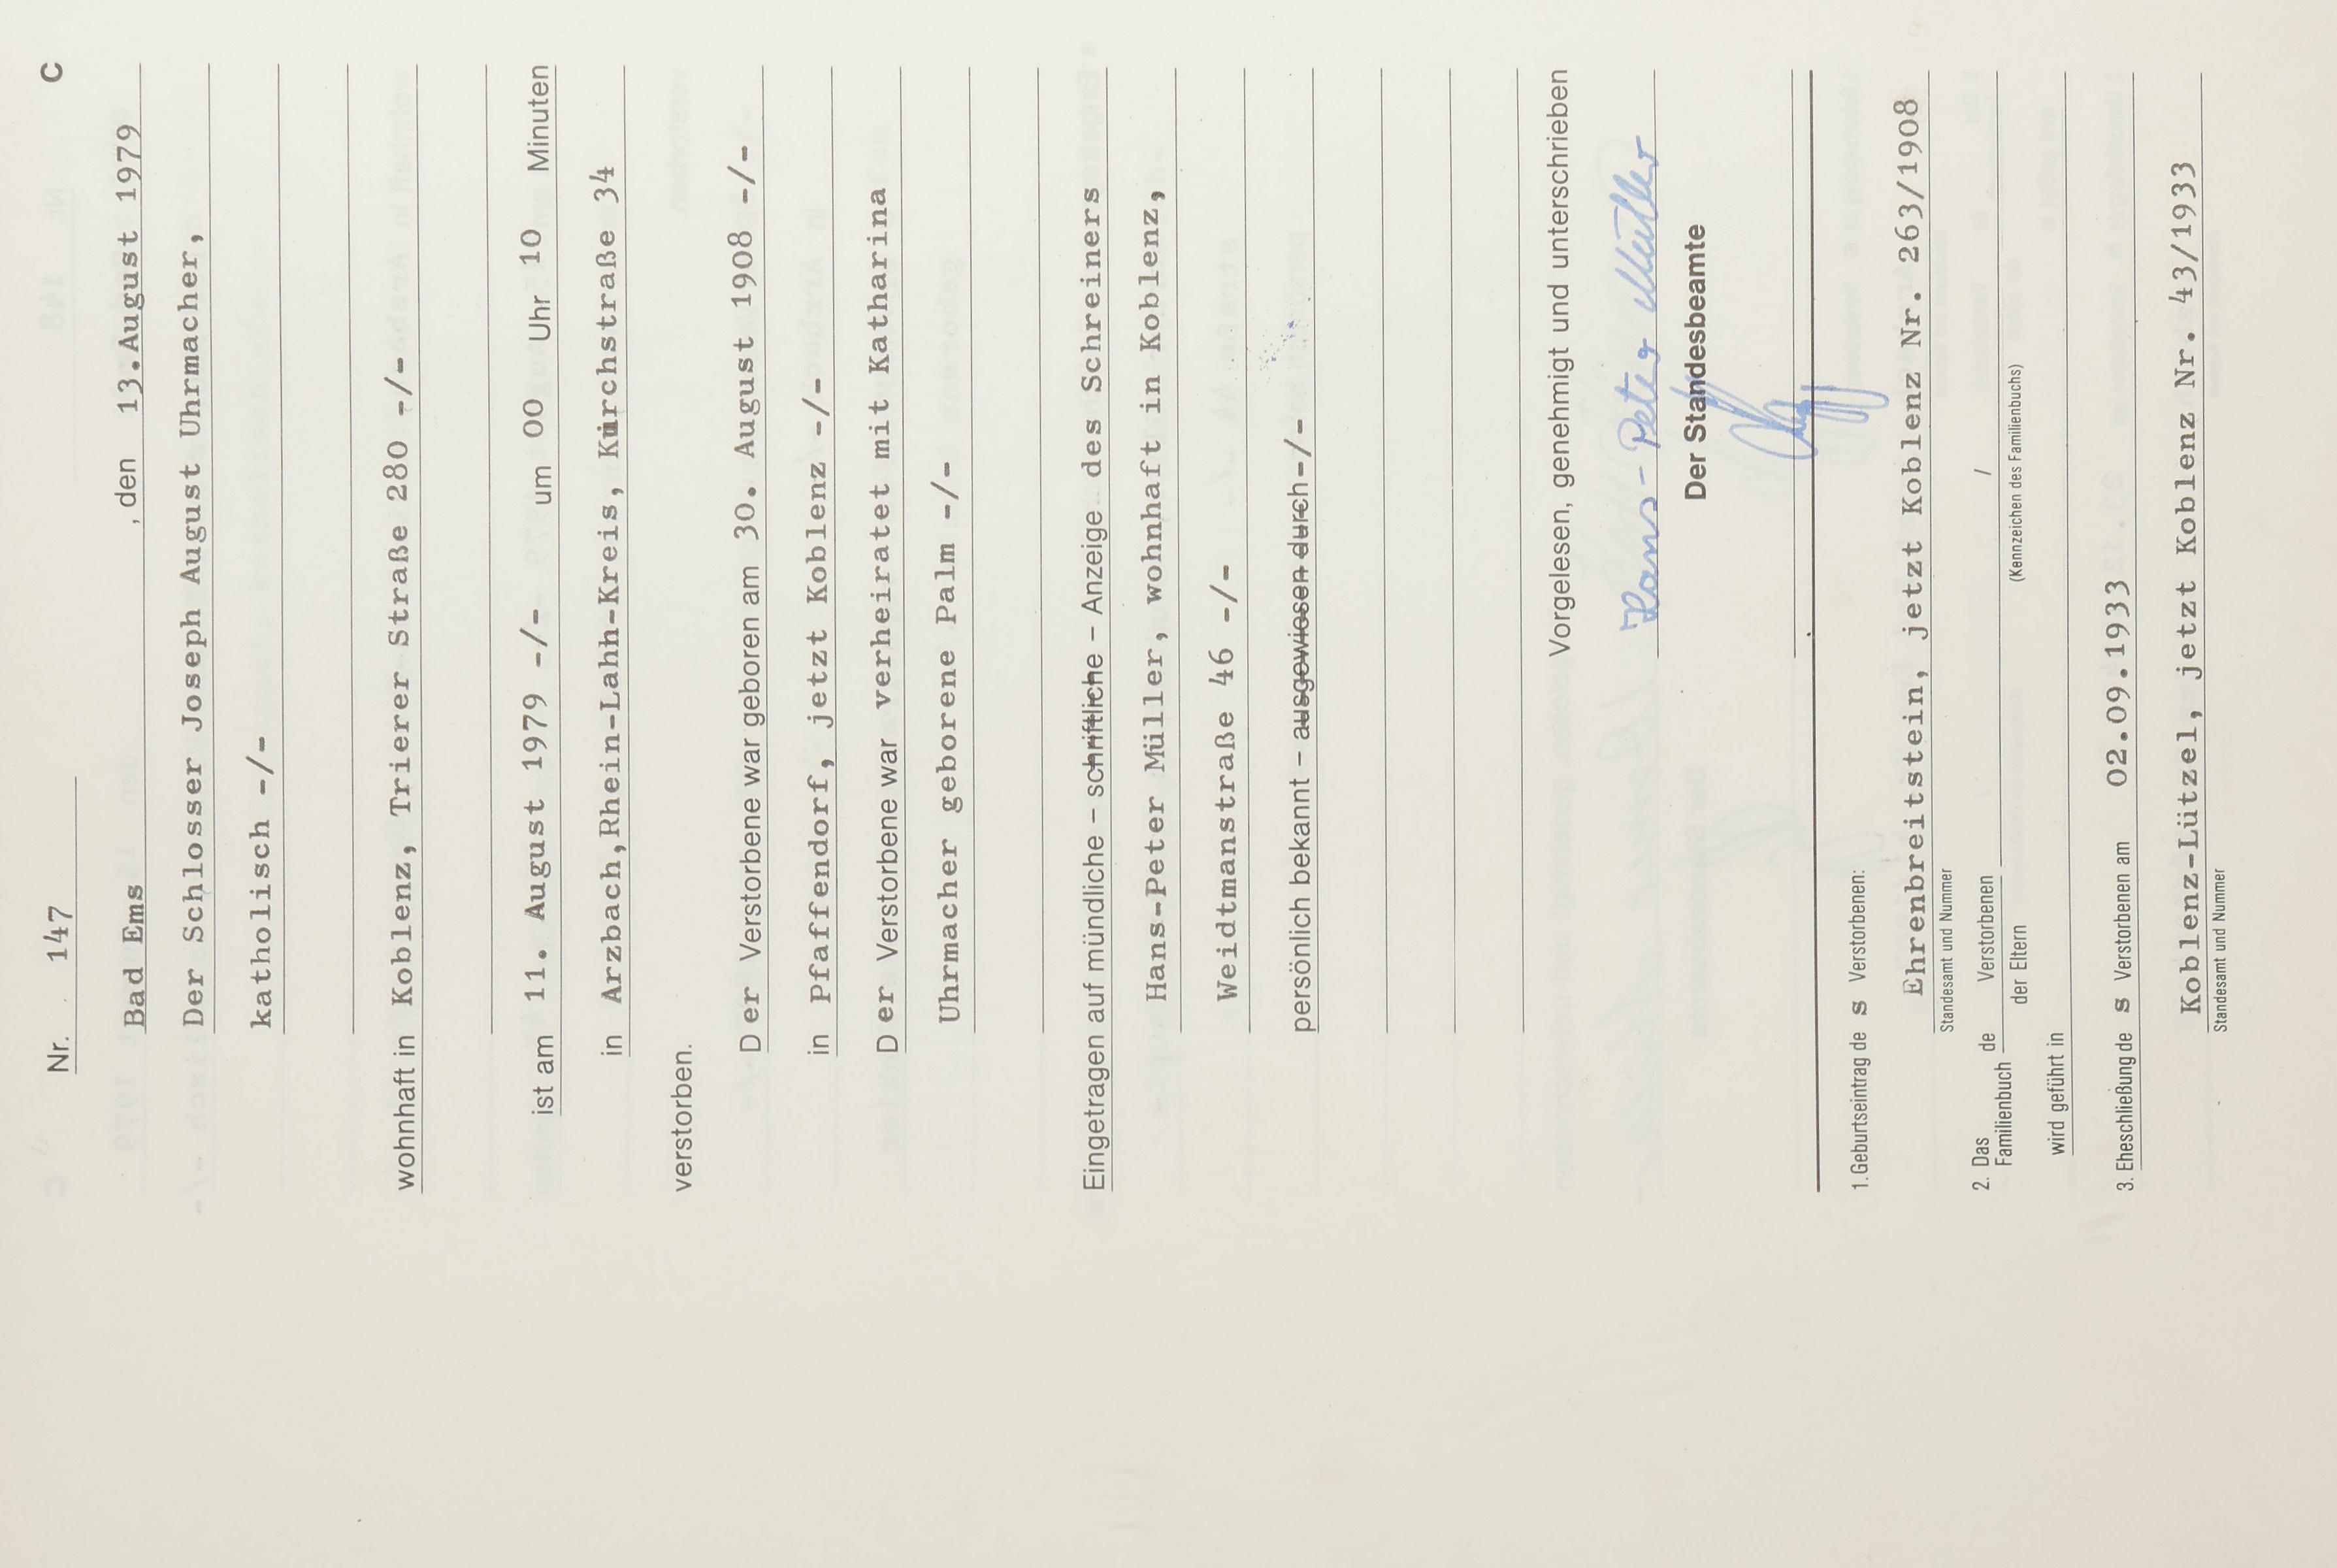 Nr. 147 C
Bad Ems , den 13.August 1979
Der Schlosser Joseph August Uhrmacher,
katholisch -/-
wohnhaft in Koblenz, Trierer Straße 280 -/-
ist am 11. August 1979 -/- um 00 Uhr 10 Minuten
in Arzbach,Rhein-Lahn-Kreis, Kirchstraße 34
verstorben.
D er Verstorbene war geboren am 30. August 1908 -/-
in Pfaffendorf, jetzt Koblenz -/-
D er Verstorbene war verheiratet mit Katharina
Uhrmacher geborene Palm -/-
Eingetragen auf mündliche – schriftliche – Anzeige des Schreiners
Hans-Peter Müller, wohnhaft in Koblenz,
Weidtmanstraße 46 -/-
persönlich bekannt – ausgewiesen durch -/-
Vorgelesen, genehmigt und unterschrieben
Hans-Peter Müller
Der Standesbeamte
1. Geburtseintrag de s Verstorbenen:
Ehrenbreitstein, jetzt Koblenz Nr. 263/1908
Standesamt und Nummer
2. Das Familienbuch de Verstorbenen /
der Eltern (Kennzeichen des Familienbuchs)
wird geführt in
3. Eheschließung de s Verstorbenen am 02.09.1933
Koblenz-Lützel, jetzt Koblenz Nr. 43/1933
Standesamt und Nummer